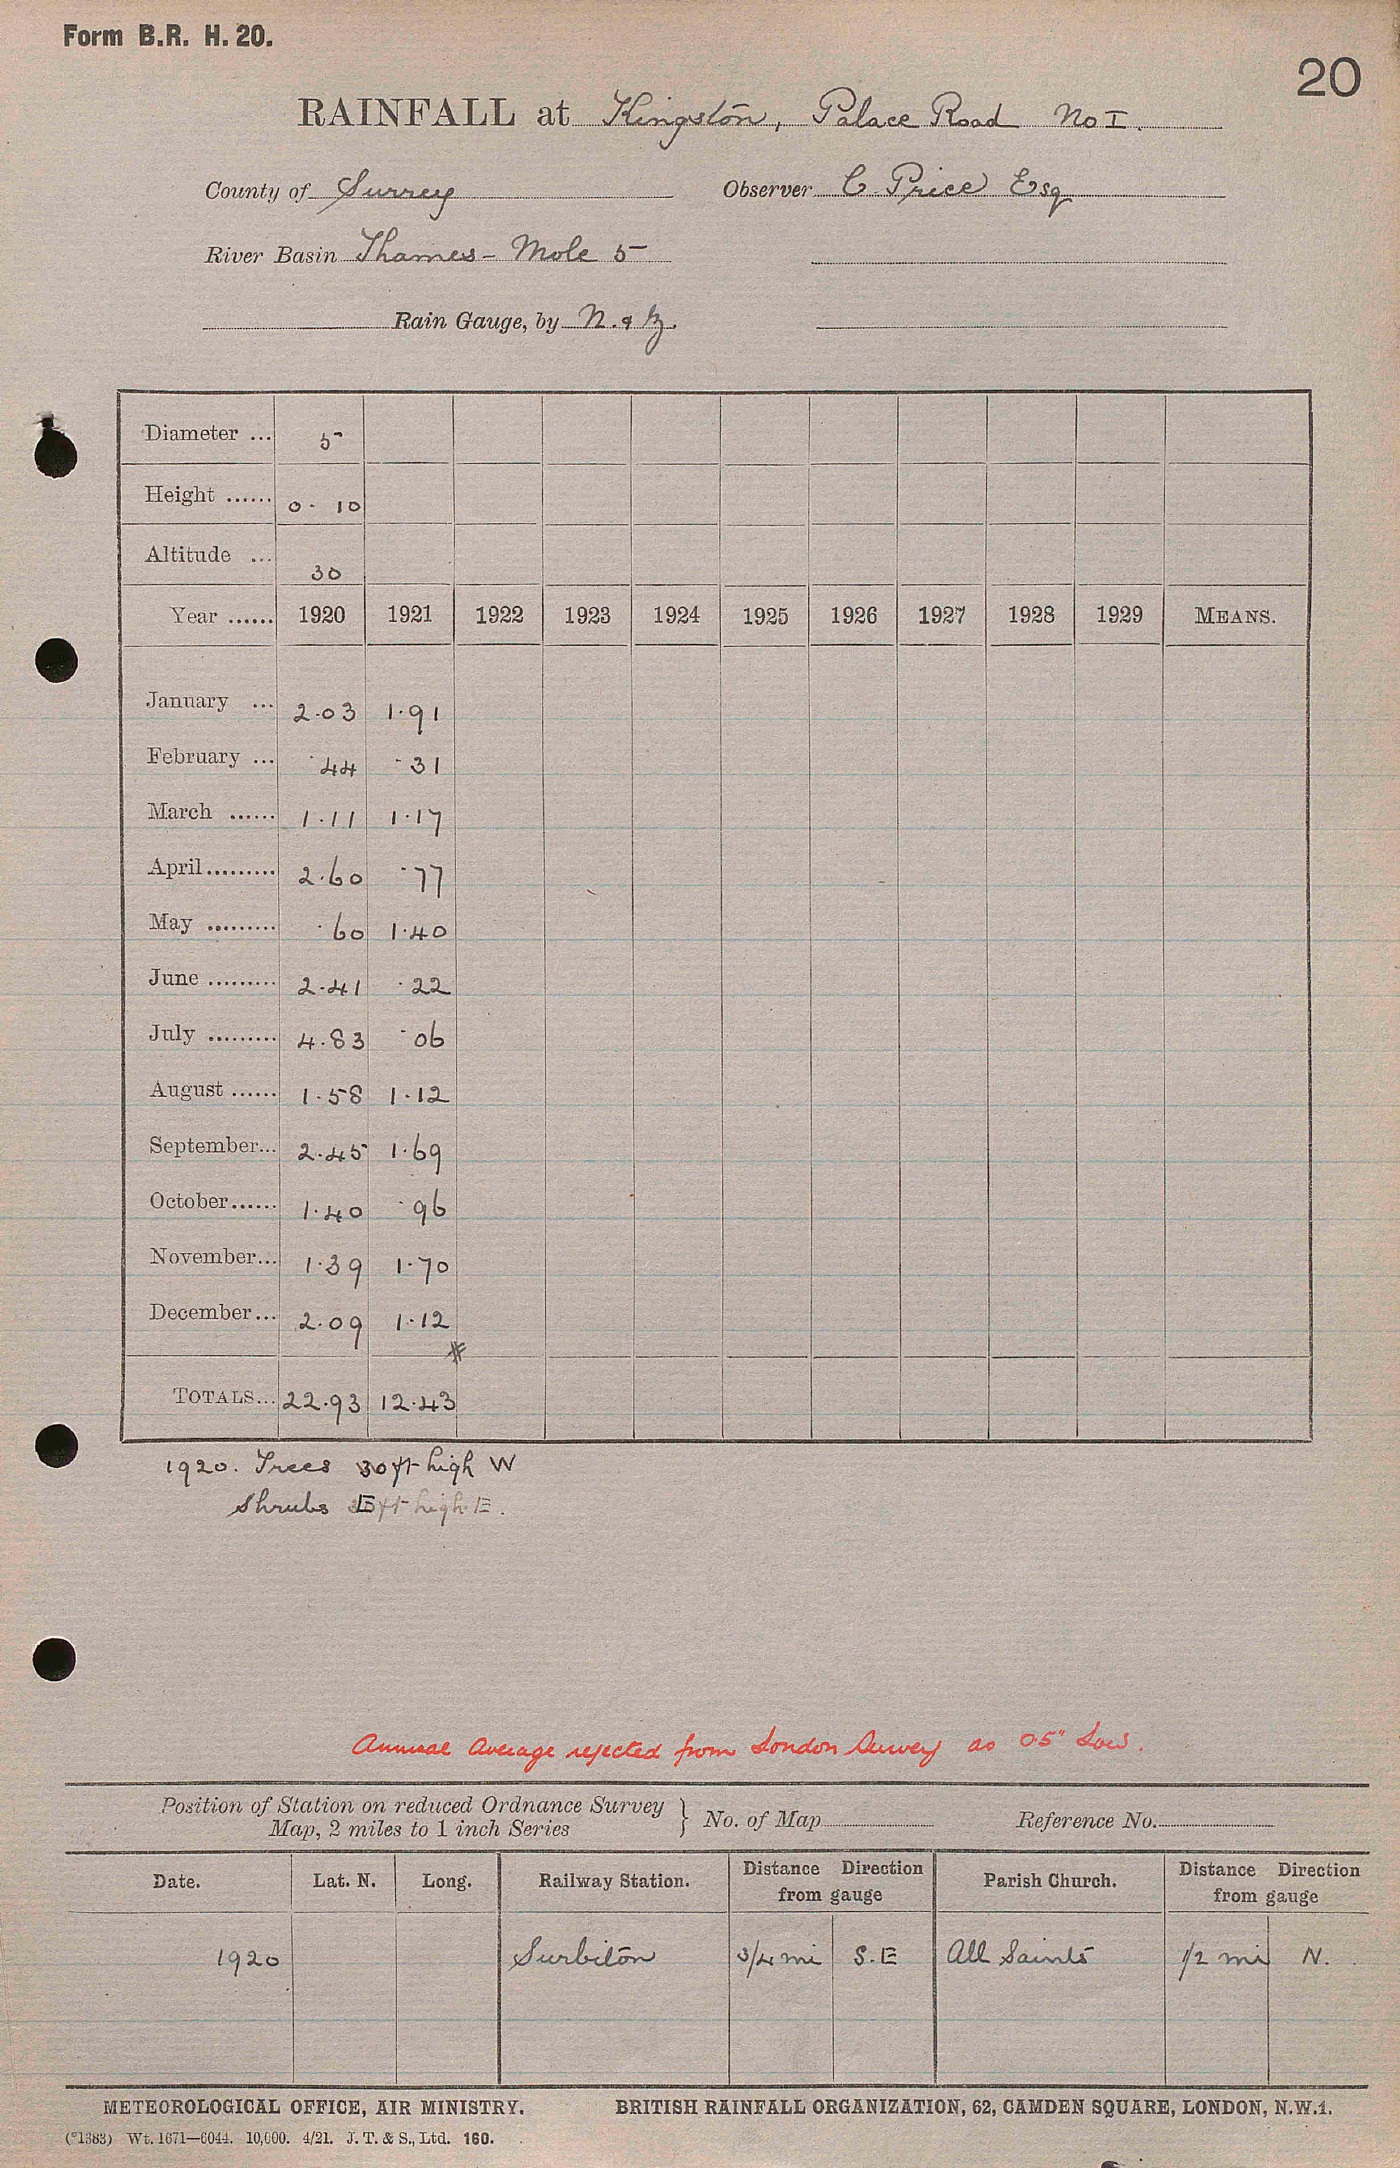 Form B.R. H. 20.
20
RAINFALL at Kingston, Palace Road No I.
County of Surrey Observer C Price Esq
River Basin Thames - Mole 5
Rain Gauge, by N. & Z.
Diameter ... 5
Height ...... 0 - 10
Altitude ... 30
Year ...... 1920 1921 1922 1923 1924 1925 1926 1927 1928 1929 MEANS.
January ... 2.03 1.91
February ... .44 .31
March ...... 1.11 1.17
April ......... 2.60 .77
May ......... .60 1.40
June ......... 2.41 .22
July ......... 4.83 .06
August ...... 1.58 1.12
September... 2.45 1.69
October...... 1.40 .96
November... 1.39 1.70
December... 2.09 1.12
#
TOTALS... 22.93 12.43
1920. Trees 30 ft high W
Shrubs E ft high E.
Annual Average rejected from London Survey as 0.5" Low.
Position of Station on reduced Ordnance Survey
Map, 2 miles to 1 inch Series } No. of Map Reference No.
Date. Lat. N. Long. Railway Station. Distance Direction from gauge Parish Church. Distance Direction from gauge
1920 Surbiton 3/4 mi S.E All Saints 1/2 mi N.
METEOROLOGICAL OFFICE, AIR MINISTRY. BRITISH RAINFALL ORGANIZATION, 62, CAMDEN SQUARE, LONDON, N.W.1.
(*1383) Wt. 1671—6044. 10,000. 4/21. J. T. & S., Ltd. 160.